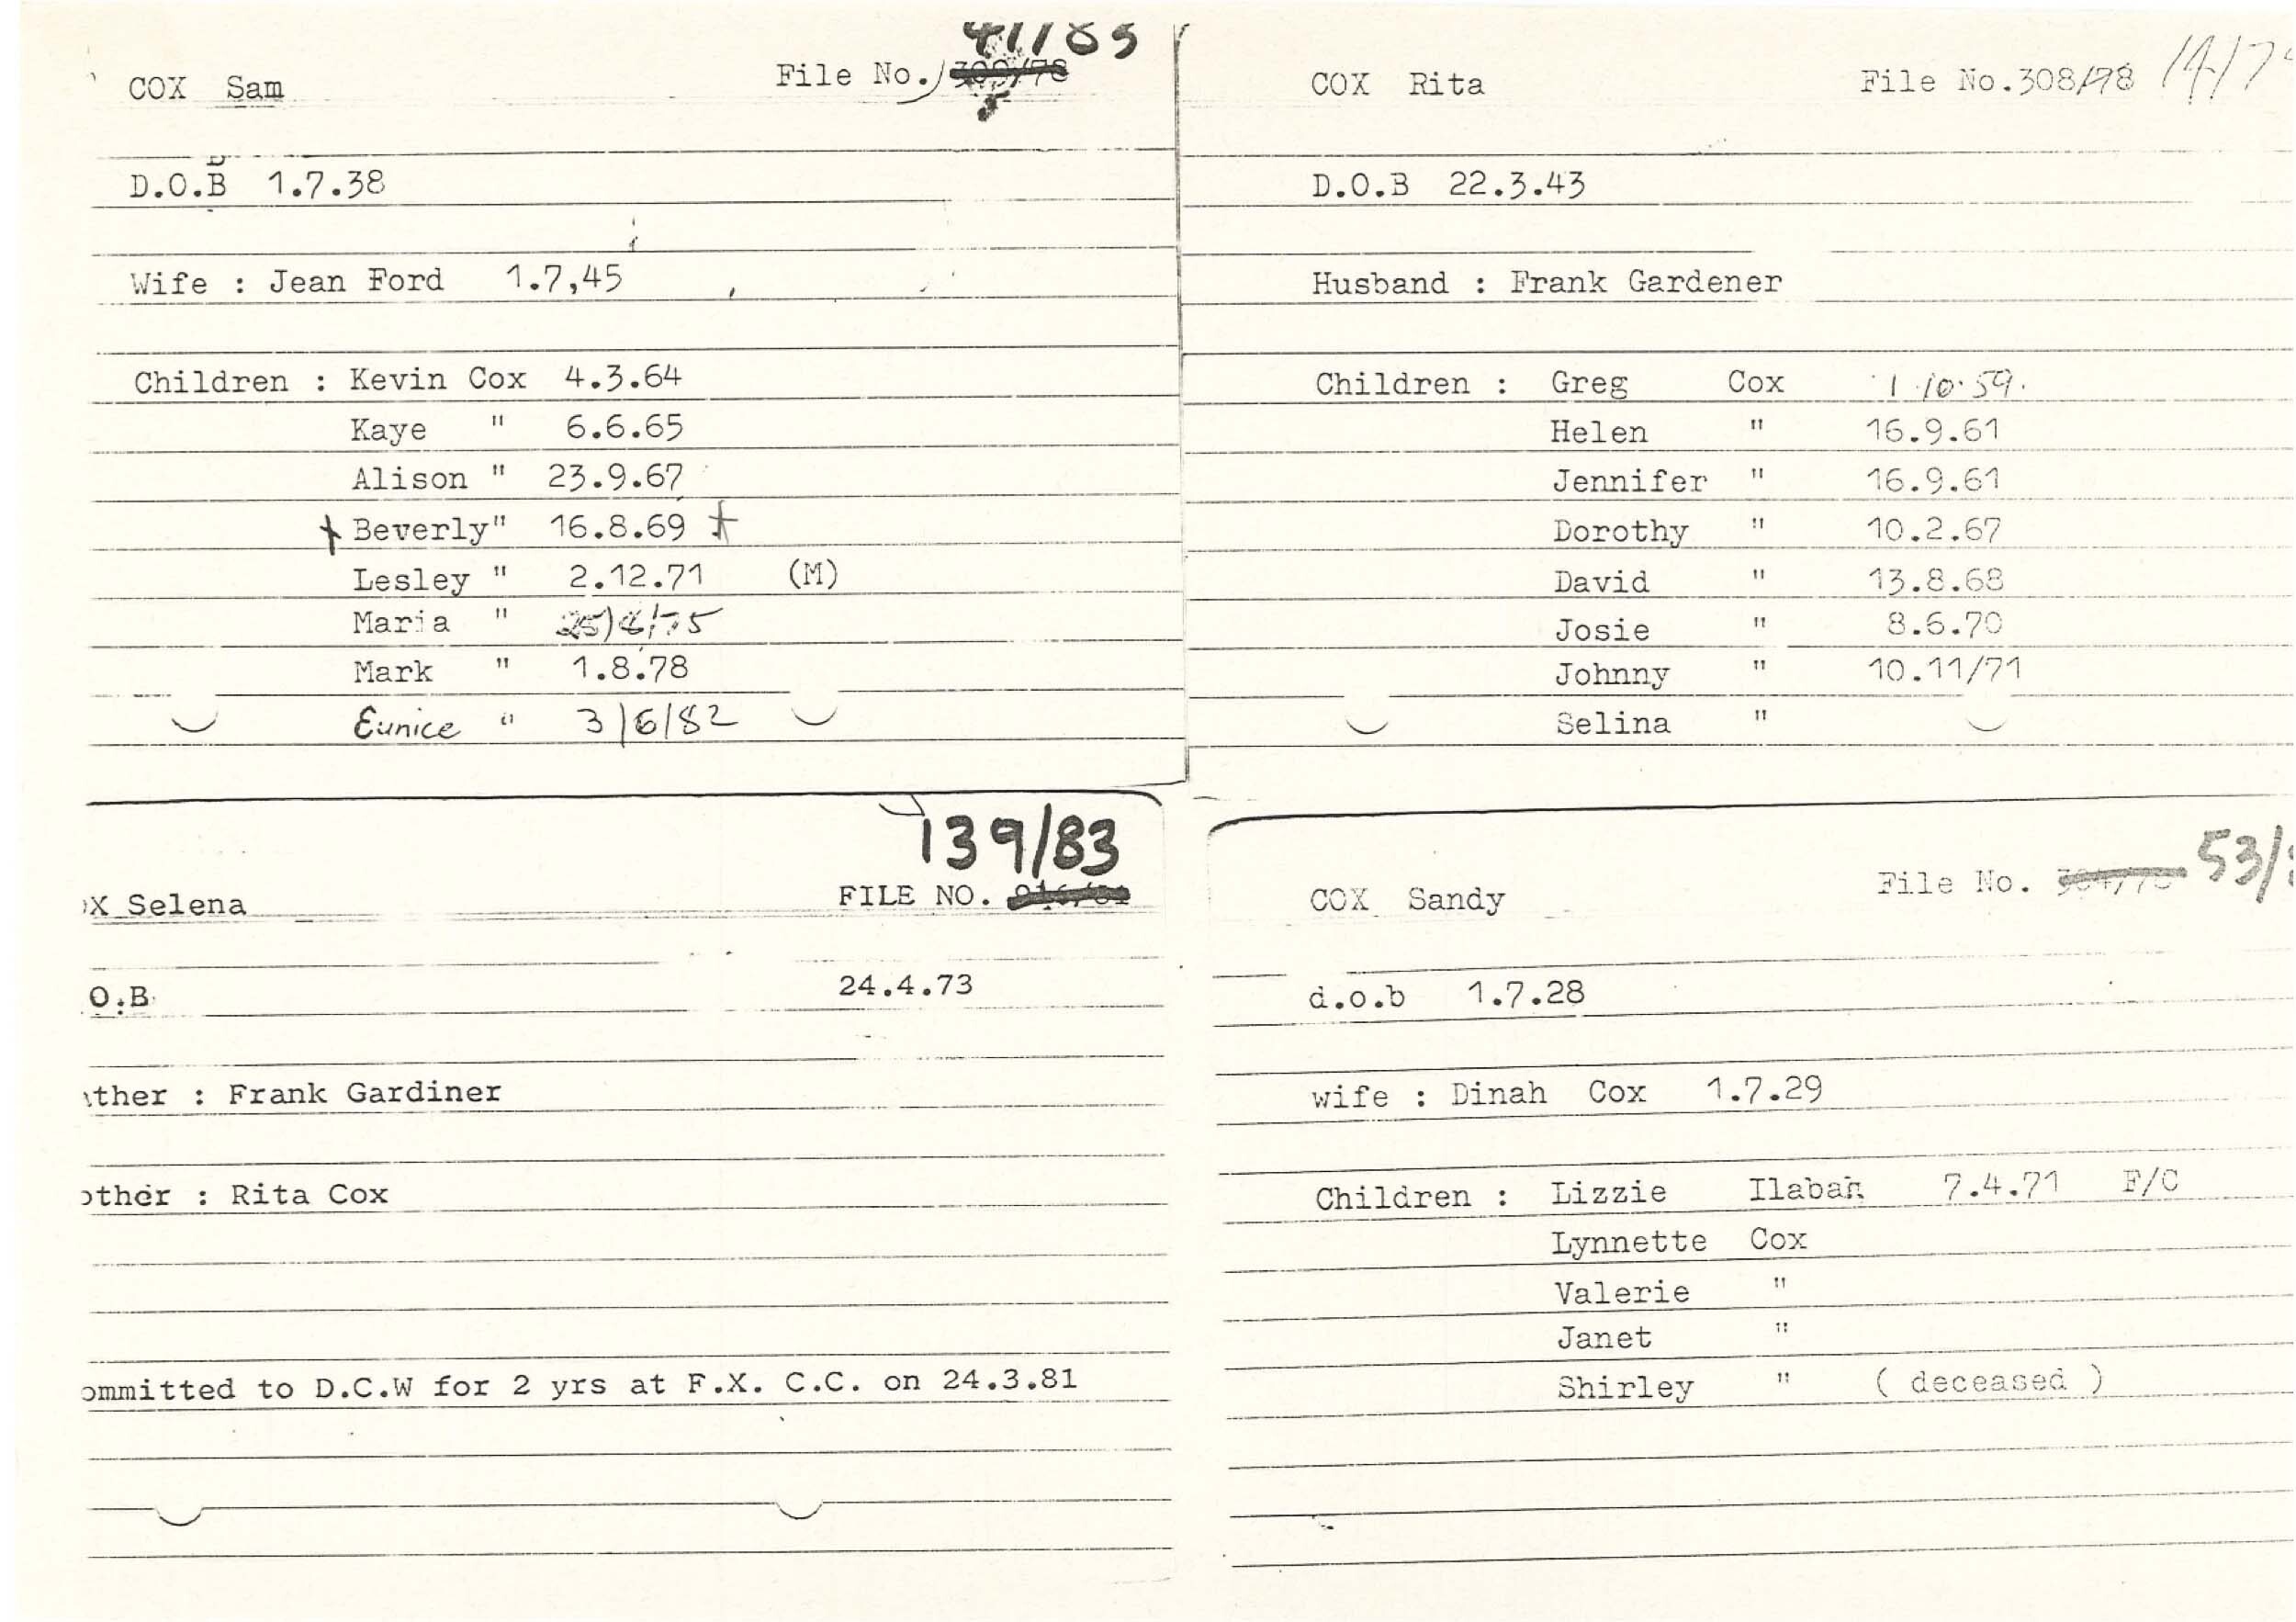 41/83
COX Sam File No.
D.O.B 1.7.38
Wife : Jean Ford 1.7,45
Children : Kevin Cox 4.3.64
Kaye " 6.6.65
Alison " 23.9.67
Beverly" 16.8.69
Lesley " 2.12.71 (M)
Maria "
Mark " 1.8.78
Eunice " 3/6/82
COX Rita File No.308/78
D.O.B 22.3.43
Husband : Frank Gardener
Children : Greg Cox 1.10.59.
Helen " 16.9.61
Jennifer " 16.9.61
Dorothy " 10.2.67
David " 13.8.68
Josie " 8.6.70
Johnny " 10.11/71
Selina "
139/83
X Selena FILE NO.
O.B 24.4.73
ther : Frank Gardiner
other : Rita Cox
ommitted to D.C.W for 2 yrs at F.X. C.C. on 24.3.81
53/
COX Sandy File No.
d.o.b 1.7.28
wife : Dinah Cox 1.7.29
Children : Lizzie Ilabah 7.4.71 F/C
Lynnette Cox
Valerie "
Janet "
Shirley " ( deceased )